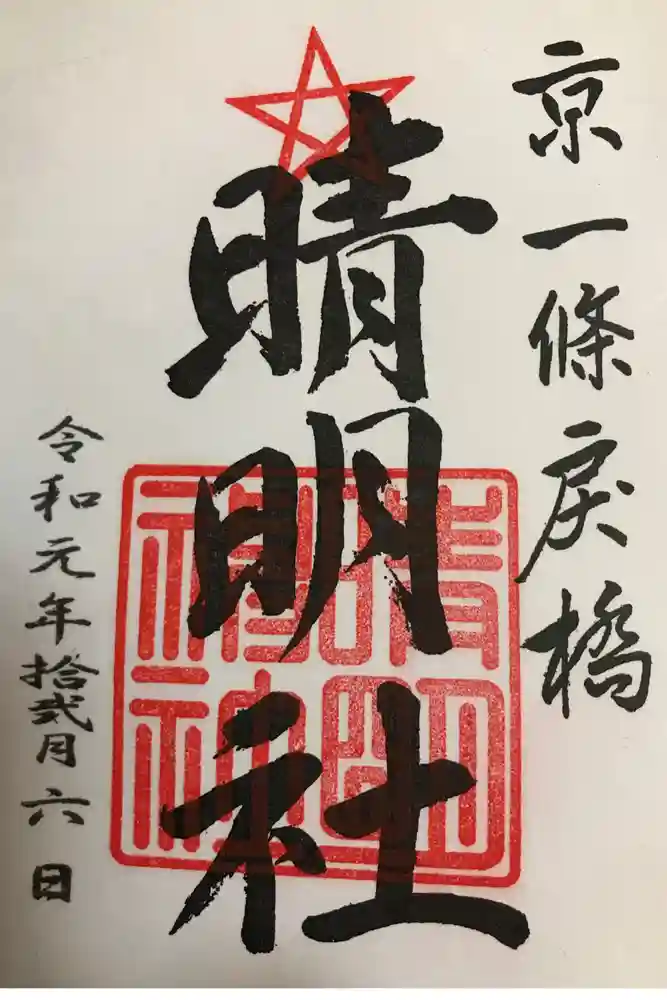 京一條戻橋
晴明社
令和元年拾弐月六日
晴明
神社